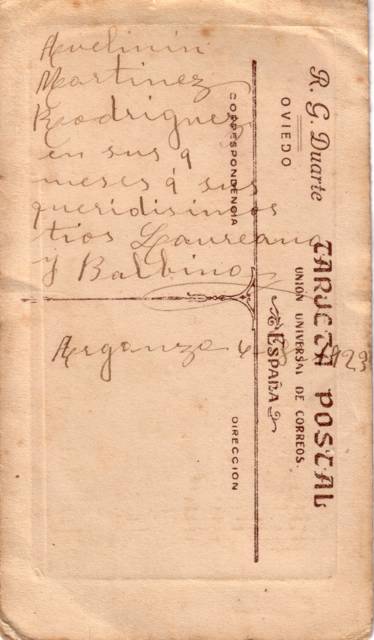 Avelinin
Martinez
Rodriguez
en sus 9
meses á sus
queridisimos
tios Laureana
y Balbino
Arganza 6-8-1923
R. G. Duarte
OVIEDO
TARJETA POSTAL
UNIÓN UNIVERSAL DE CORREOS.
ESPAÑA
CORRESPONDENCIA
DIRECCION